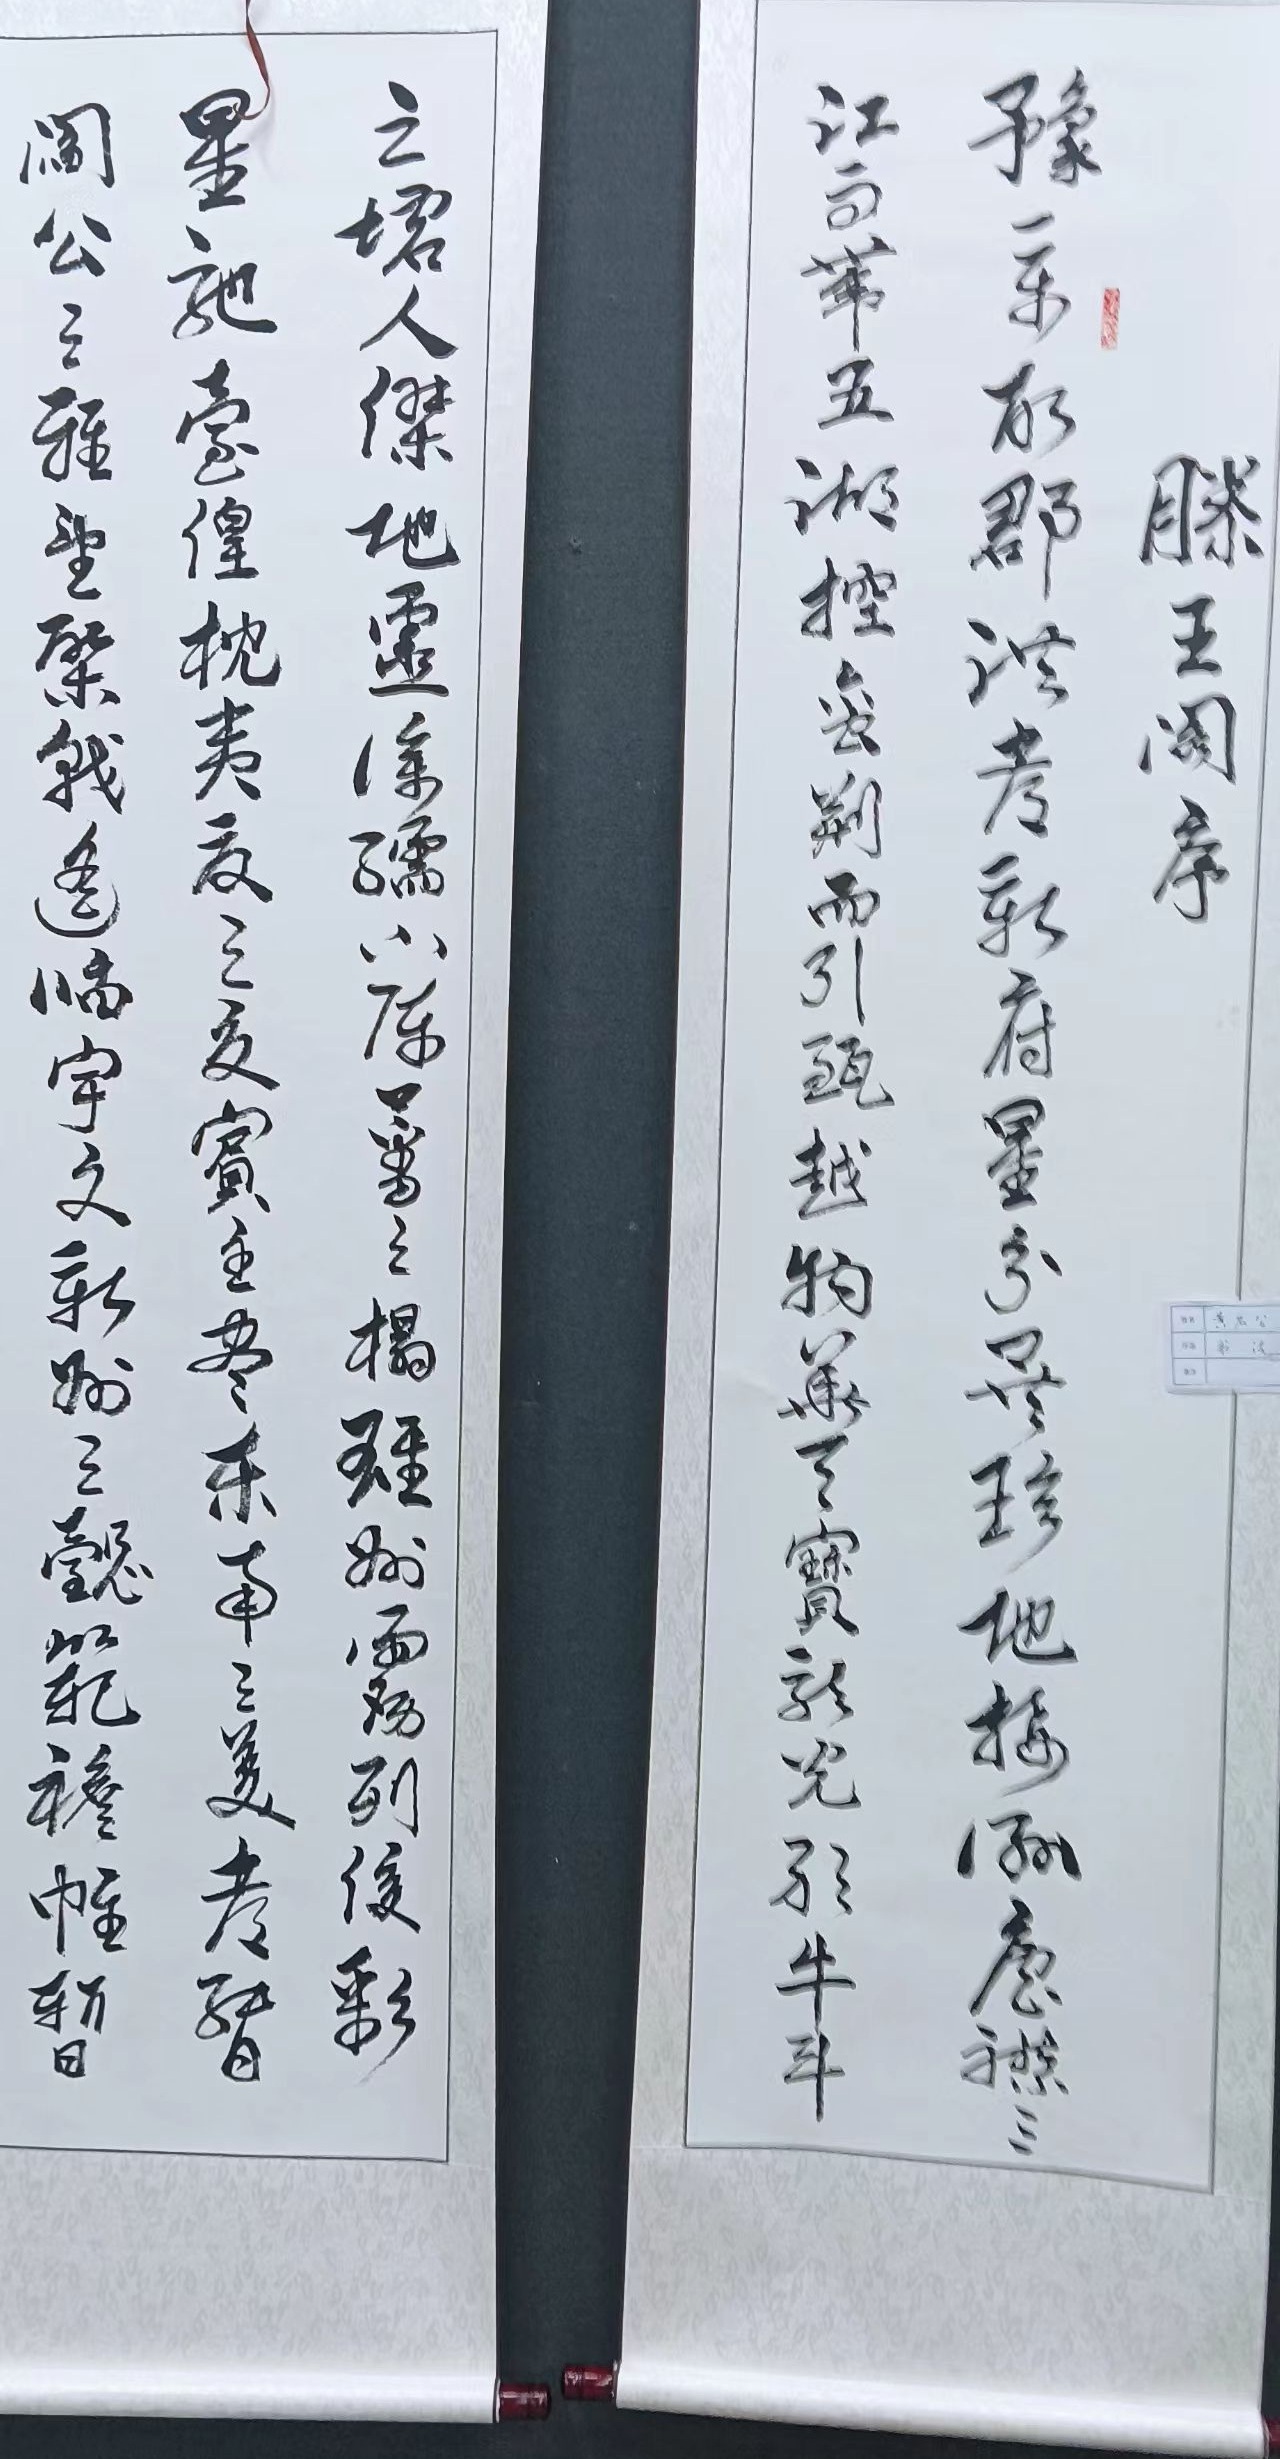 滕王阁序
豫章故郡洪都新府星分翼軫地接衡廬襟三
江而帶五湖控蛮荆而引甌越物華天寶龍光射牛斗
之墟人傑地靈徐孺下陳蕃之榻雄州霧列俊彩
星馳臺隍枕夷夏之交賓主尽東南之美都督
閻公之雅望棨戟遙臨宇文新州之懿範襜帷暫